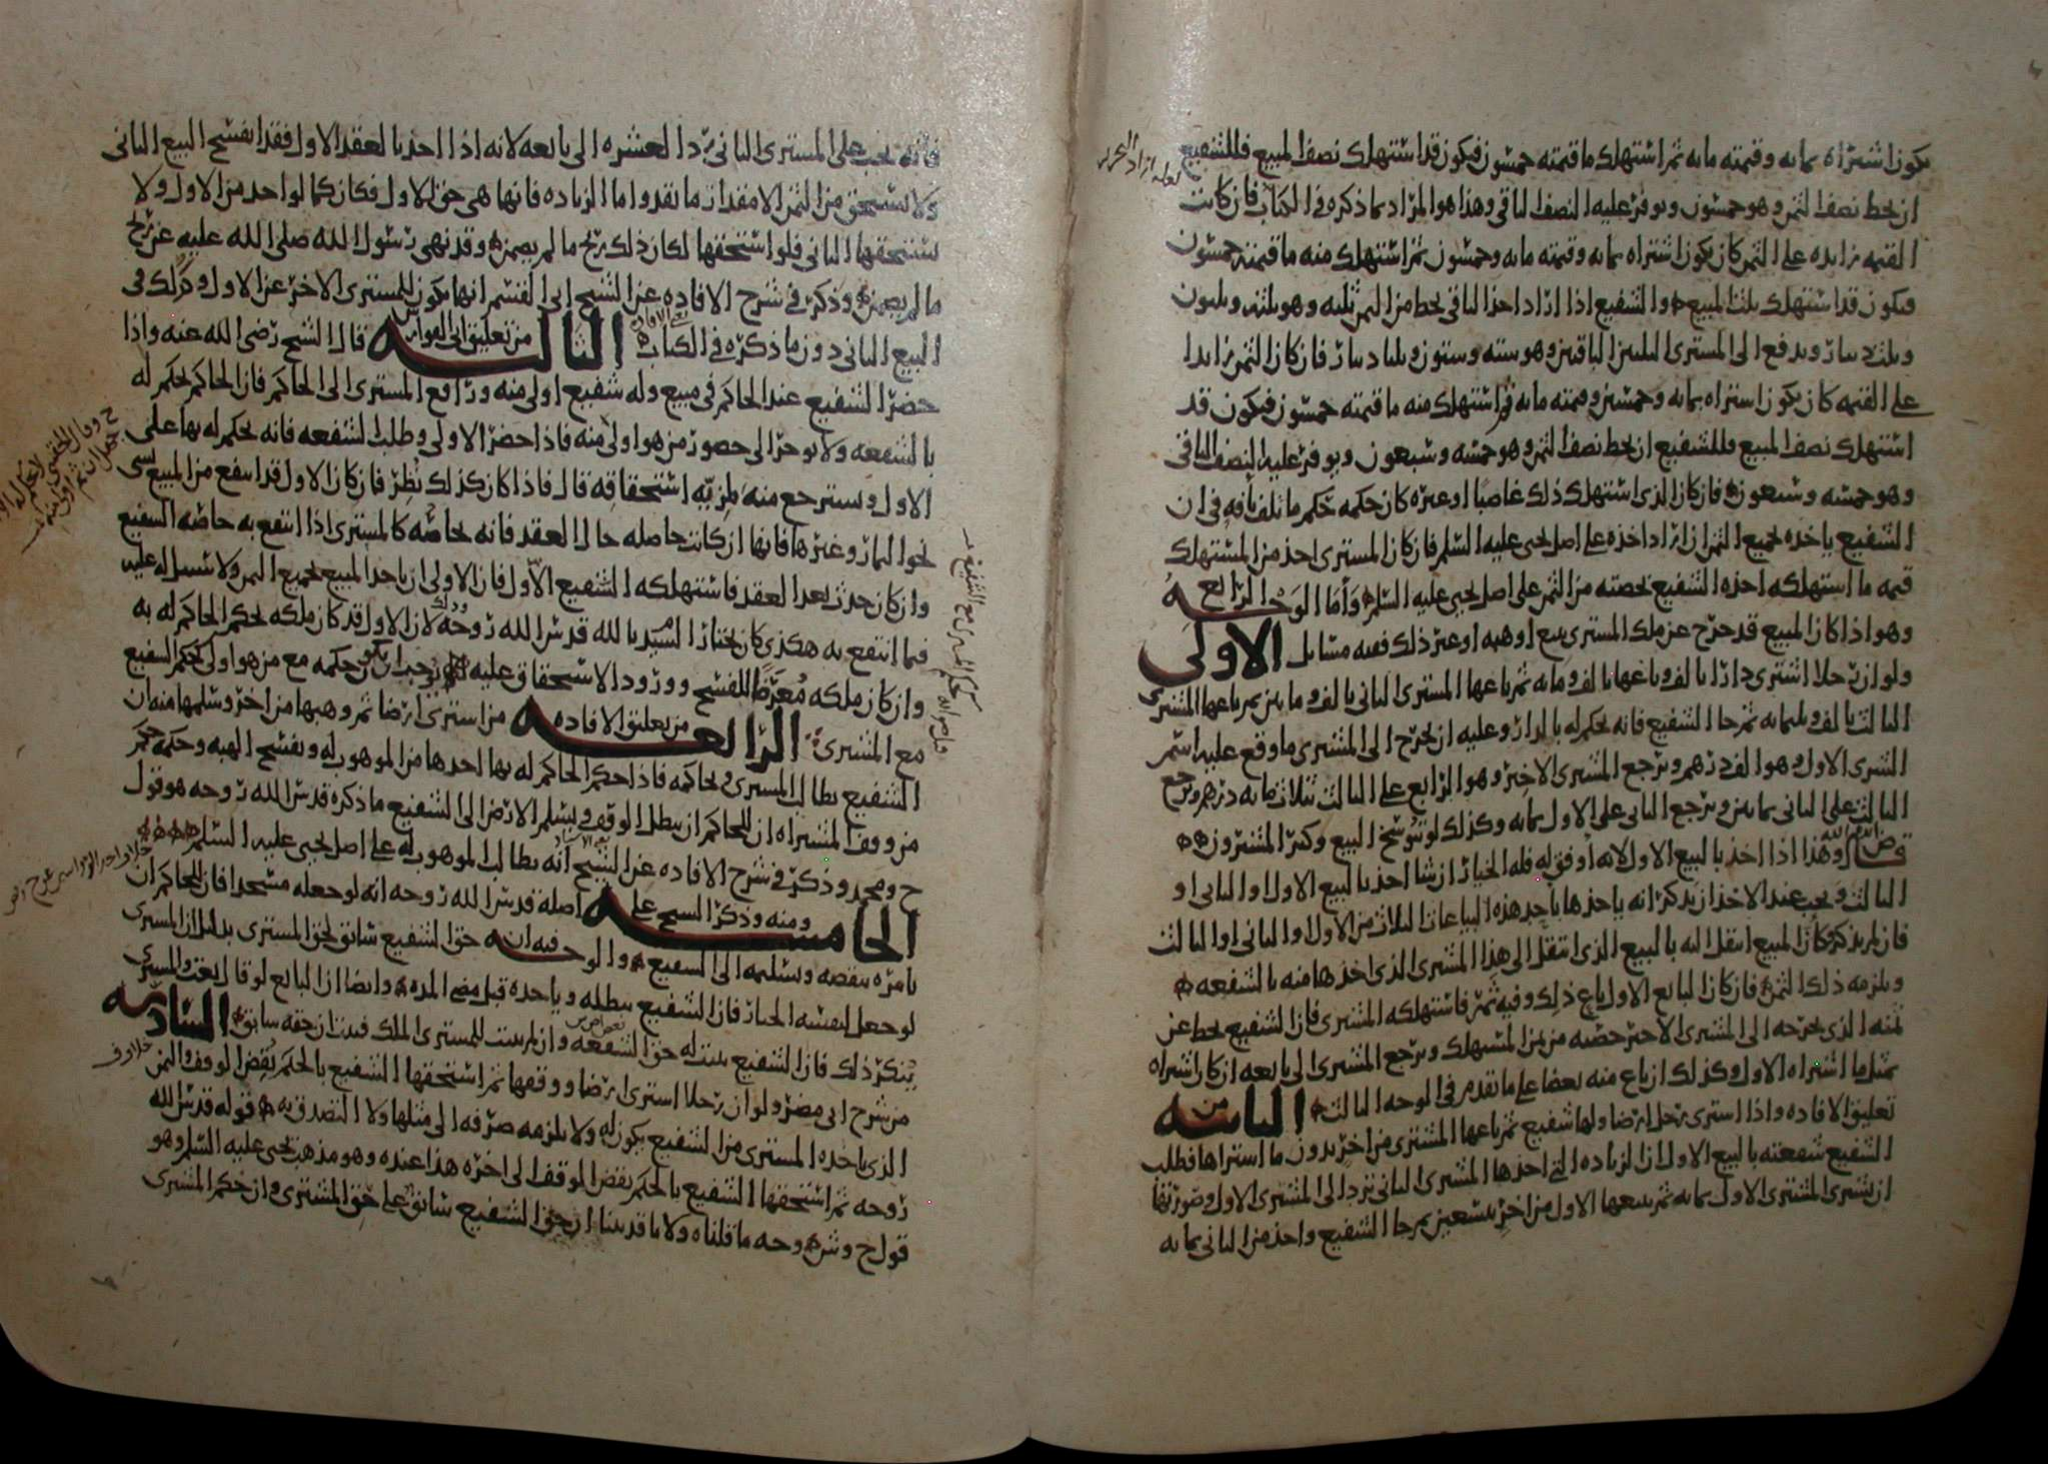 يكون اشتراه بمائه وقيمته مائه ثم استهلك ما قيمته خمسون فيكون قد استهلك نصف المبيع فللشفيع
ان يحط نصف الثمن وهو خمسون ويوفر عليه النصف الباقي وهذا هو المراد بما ذكره في الكتاب فان كانت
القيمه زايده على الثمن كان يكون اشتراه بمائه وقيمته مائه وخمسون ثم استهلك منه ما قيمته خمسون
فيكون قد استهلك ثلث المبيع والشفيع اذا اراد اخذ الباقي يحط من الثمن ثلثه وهو ثلثه وثلثون
وثلث دينار ويدفع الى المشتري الثلثين الباقيين وهو سته وستون وثلثا دينار فان كان الثمن زايدا
على القيمه كان يكون اشتراه بمائه وخمسين وقيمته مائه ثم استهلك منه ما قيمته خمسون فيكون قد
استهلك نصف المبيع فللشفيع ان يحط نصف الثمن وهو خمسه وسبعون ويوفر عليه النصف الباقي
وهو خمسه وسبعون فان كان الذي استهلك ذلك غاصبا او غيره كان حكمه حكم ما تلف بافه في ان
الشفيع ياخذه بجميع الثمن ان اراد اخذه على اصل يحيى عليه السلم فان كان المشتري اخذ من المستهلك
قيمه ما استهلكه اخذه الشفيع بحصته من الثمن على اصل يحيى عليه السلم واما الوجه الرابع
وهو اذا كان المبيع قد خرج عن ملك المشتري ببيع او هبه او غير ذلك ففيه مسايل الاولى
ولو ان رجلا اشترى دارا بالف وباعها بالف ومائه ثم باعها المشتري الثاني بالف ومايتين ثم باعها المشتري
الثالث بالف وثلثمائه ثم جا الشفيع فانه يحكم له بالدار وعليه ان يخرج الى المشتري ما وقع عليه اسم
الشرى الاول وهو الف درهم ويرجع المشتري الاخير وهو الرابع على الثالث بثلاث مائه درهم ويرجع
الثالث على الثاني بمايتين ويرجع الثاني على الاول بمائه وكذلك لو تنوسخ البيع وكثر المشترون
وهذا اذا اخذ بالبيع الاول لانه اوفق له فله الخيار ان شا اخذ بالبيع الاول او الثاني او
الثالث ويجب عند الاخذ ان يذكر انه ياخذها باحد هذه البياعات الثلاث من الاول او الثاني او الثالث
فان لم يذكر كان المبيع انتقل اليه بالبيع الذي انتقل الى هذا المشتري الذي اخذها منه بالشفعه
ويلزمه ذلك الثمن فان كان البايع الاول باع ذلك وفيه ثمر فاستهلكه المشتري فان الشفيع يحط عن
ثمنه الذي يخرجه الى المشتري الاخير حصته من ثمن المستهلك ويرجع المشتري الى بايعه ان كان اشراه
بمثل ما اشتراه الاول وكذلك ان باع منه بعضا على ما تقدم في الوجه الثالث الثانيه من
تعليق الافاده واذا اشترى رجل ارضا ولها شفيع ثم باعها المشتري من اخر بدون ما اشتراها فطلب
الشفيع شفعته بالبيع الاول ان الزياده التي اخذها المشتري الثاني ترد الى المشتري الاول وصورتها
ان يشتري المشتري الاول بمائه ثم يبيعها الاول من اخر بتسعين ثم جا الشفيع واخذ من الثاني بمائه
فانه يجب على المشتري الثاني رد العشره الى بايعه لانه اذا اخذ بالعقد الاول فقد انفسخ البيع الثاني
ولا يستحق من الثمن الا مقدار ما نقد واما الزياده فانها هي حق الاول فكان كما لو اخذ من الاول ولا
يستحقها الثاني فلو استحقها لكان ذلك ربح ما لم يضمن وقد نهى رسول الله صلى الله عليه عن ربح
ما لم يضمن وذكر في شرح الافاده عن الشيخ ابي القسم انها يكون للمشتري الاخر عن الاول وكذلك في
البيع الثاني دون ما ذكره في الكتاب الثالثه من تعليق ابي الفوارس قال الشيخ رضي الله عنه واذا
حضر الشفيع عند الحاكم في مبيع وله شفيع اولى منه ورافع المشتري الى الحاكم فان الحاكم يحكم له
بالشفعه ولا يوخر الى حضور من هو اولى منه فاذا حضر الاولى وطلب الشفعه فانه يحكم له بها على
الاول ويسترجع منه لمزيه استحقاقه قال فاذا كان كذلك نظر فان كان الاول قد انتفع من المبيع بشي
نحو الثمار وغيرها فانها ان كانت حاصله حال العقد فانه يحاصه كالمشتري اذا انتفع به حاصه الشفيع
وان كان حدث بعد العقد فاستهلكه الشفيع الاول فان الاولى ان ياخذ المبيع بجميع الثمن ولا سبيل له عليه
فيما انتفع به هكذى كان يختار السيد بالله قدس الله روحه لان الاول قد كان ملكه بحكم الحاكم له به
وان كان ملكه معرضا للفسخ وورود الاستحقاق عليه فوجب ان يكون حكمه مع من هو اولى كحكم الشفيع
مع المشتري الرابعه من تعليق الافاده من اشترى ارضا ثم وهبها من اخر وسلمها منه ان
الشفيع يطالب المشتري ويحاكمه فاذا حكم الحاكم له بها اخذها من الموهوب له ويفسخ الهبه وحكمه حكم
من وقف المشتراه ان للحاكم ان يبطل الوقف ويسلم الارض الى الشفيع ما ذكره قدس الله روحه هو قول
ح ومحمد وذكر في شرح الافاده عن الشيخ انه يطالب الموهوب له على اصل يحيى عليه السلم
الخامسه ومنه وذكر الشيخ على اصله قدس الله روحه انه لو جعله مسجدا فان للحاكم ان
يامره بنقضه وتسليمه الى الشفيع والوجه فيه ان حق الشفيع سابق لحق المشتري بدليل ان المشتري
لو جعل لنفسه الخيار فان الشفيع يبطله وياخذه قبل مضي المده وايضا ان البايع لو قال بعت والمشتري
ينكر ذلك فان الشفيع يثبت له حق الشفعه وان لم يثبت للمشتري الملك فبان ان حقه سابق السادسه
من شرح ابي مضر ولو ان رجلا اشترى ارضا ووقفها ثم استحقها الشفيع بالحكم نقض الوقف والثمن
الذي ياخذه المشتري من الشفيع يكون له ولا يلزمه صرفه الى مثلها ولا التصدق به قوله قدس الله
روحه ثم استحقها الشفيع بالحكم نقض الوقف الى اخره هذا عنده وهو مذهب يحيى عليه السلم وهو
قول ح وش وجه ما قلناه ولانا قد بينا ان حق الشفيع سابق على حق المشتري وان حكم المشتري